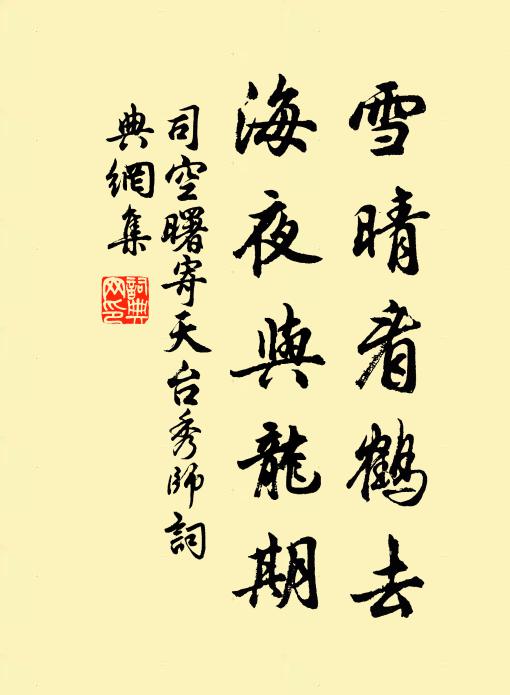 雪晴看鶴去
海夜與龍期
司空曙寄天台秀師詞
典網集
詞典
网印